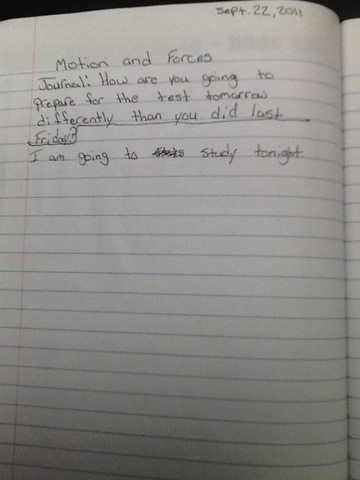 Sept. 22, 2011
Motion and Forces
Journal: How are you going to
prepare for the test tomorrow
differently than you did last
Friday?
I am going to study tonight.